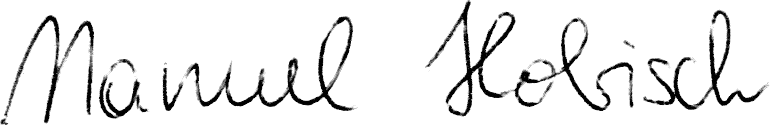 Manuel Hobisch